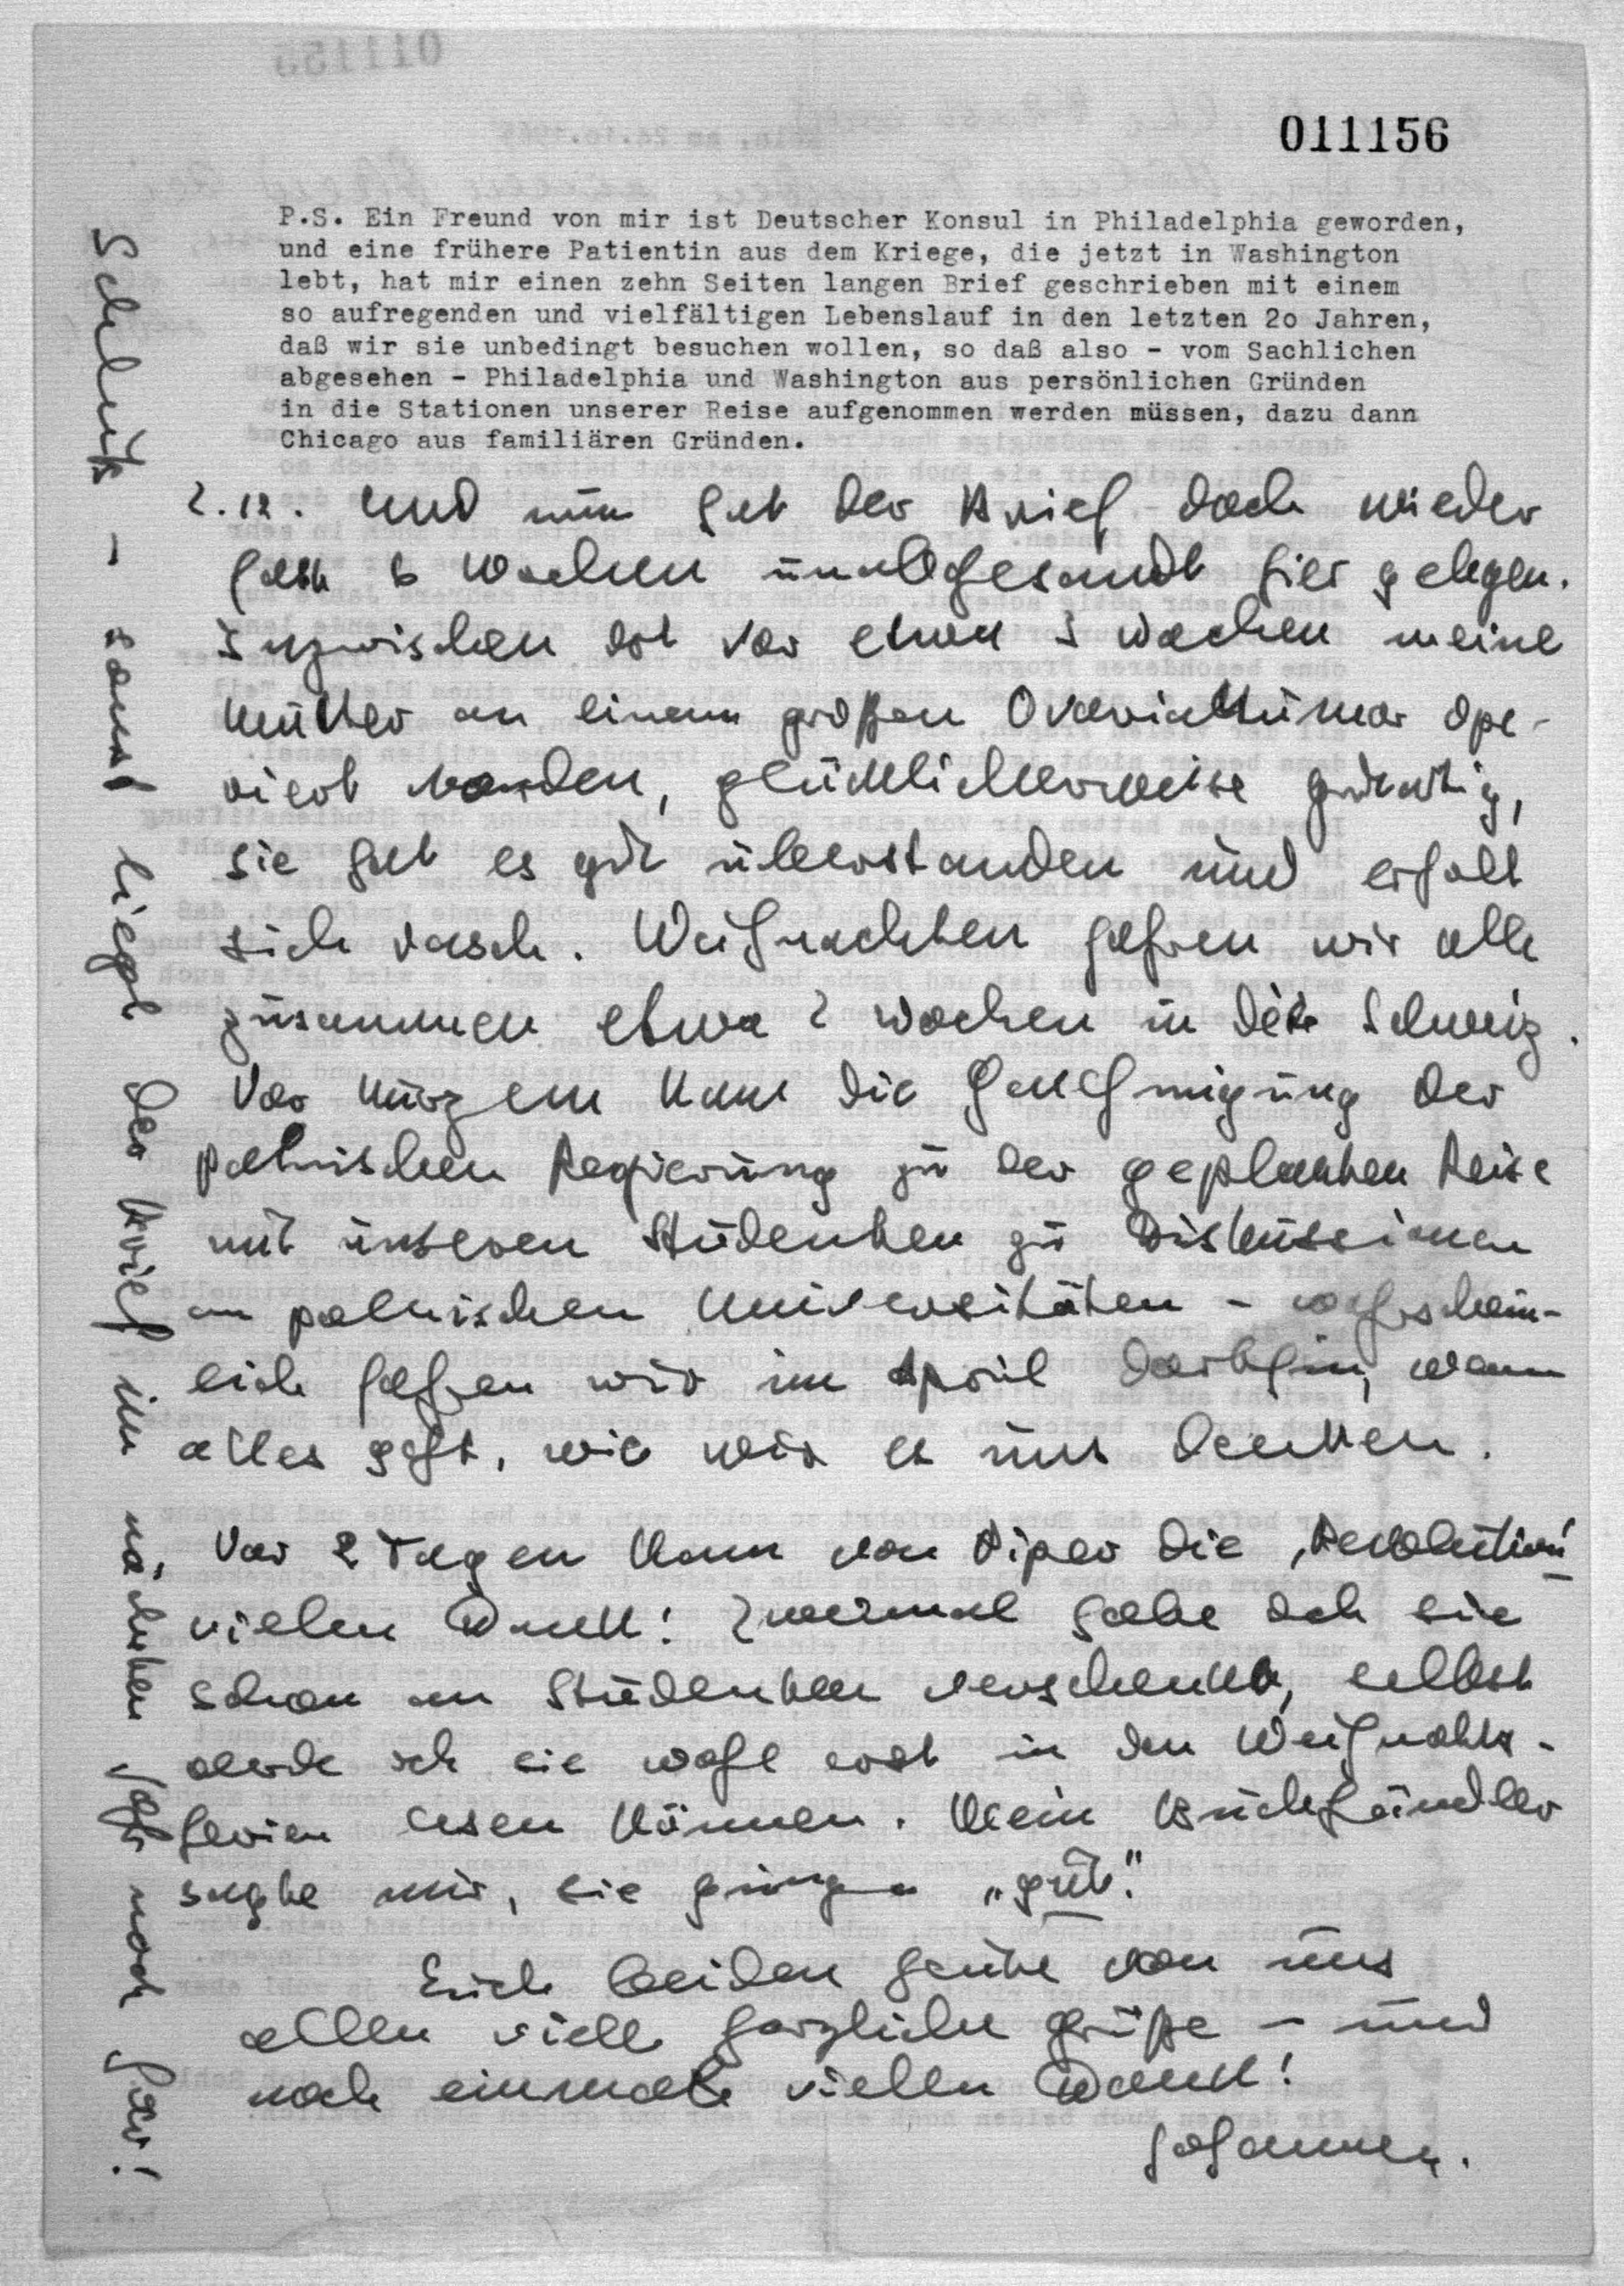 011156
P.S. Ein Freund von mir ist Deutscher Konsul in Philadelphia geworden,
und eine frühere Patientin aus dem Kriege, die jetzt in Washington
lebt, hat mir einen zehn Seiten langen Brief geschrieben mit einem
so aufregenden und vielfältigen Lebenslauf in den letzten 2o Jahren,
daß wir sie unbedingt besuchen wollen, so daß also - vom Sachlichen
abgesehen - Philadelphia und Washington aus persönlichen Gründen
in die Stationen unserer Reise aufgenommen werden müssen, dazu dann
Chicago aus familiären Gründen.
2.12. Und nun hat der Brief doch wieder
fast 6 Wochen unabgesandt hier gelegen.
Inzwischen ist vor etwa 3 Wochen meine
Mutter an einem großen Ovarialtumor ope-
riert worden, glücklicherweise gutartig,
sie hat es gut überstanden und erholt
sich rasch. Weihnachten fahren wir alle
zusammen etwa 2 Wochen in die Schweiz.
Vor kurzem kam die Genehmigung der
polnischen Regierung zu der geplanten Reise
mit unseren Studenten zu Diskussionen
an polnischen Universitäten - wahrschein-
lich fahren wir im April dorthin, wenn
alles geht, wie wir es uns denken.
Vor 2 Tagen kam von Piper die „Revolution“
vielen Dank! Zweimal habe ich sie
schon an Studenten verschenkt, selbst
werde ich sie wohl erst in den Weihnachts-
ferien lesen können. Mein Buchhändler
sagte mir, sie ginge „gut“.
Euch beiden heute von uns
allen viele herzliche Grüße - und
noch einmal vielen Dank!
Johannes.
Schluß - sonst liegt der Brief im nächsten Jahr noch hier!